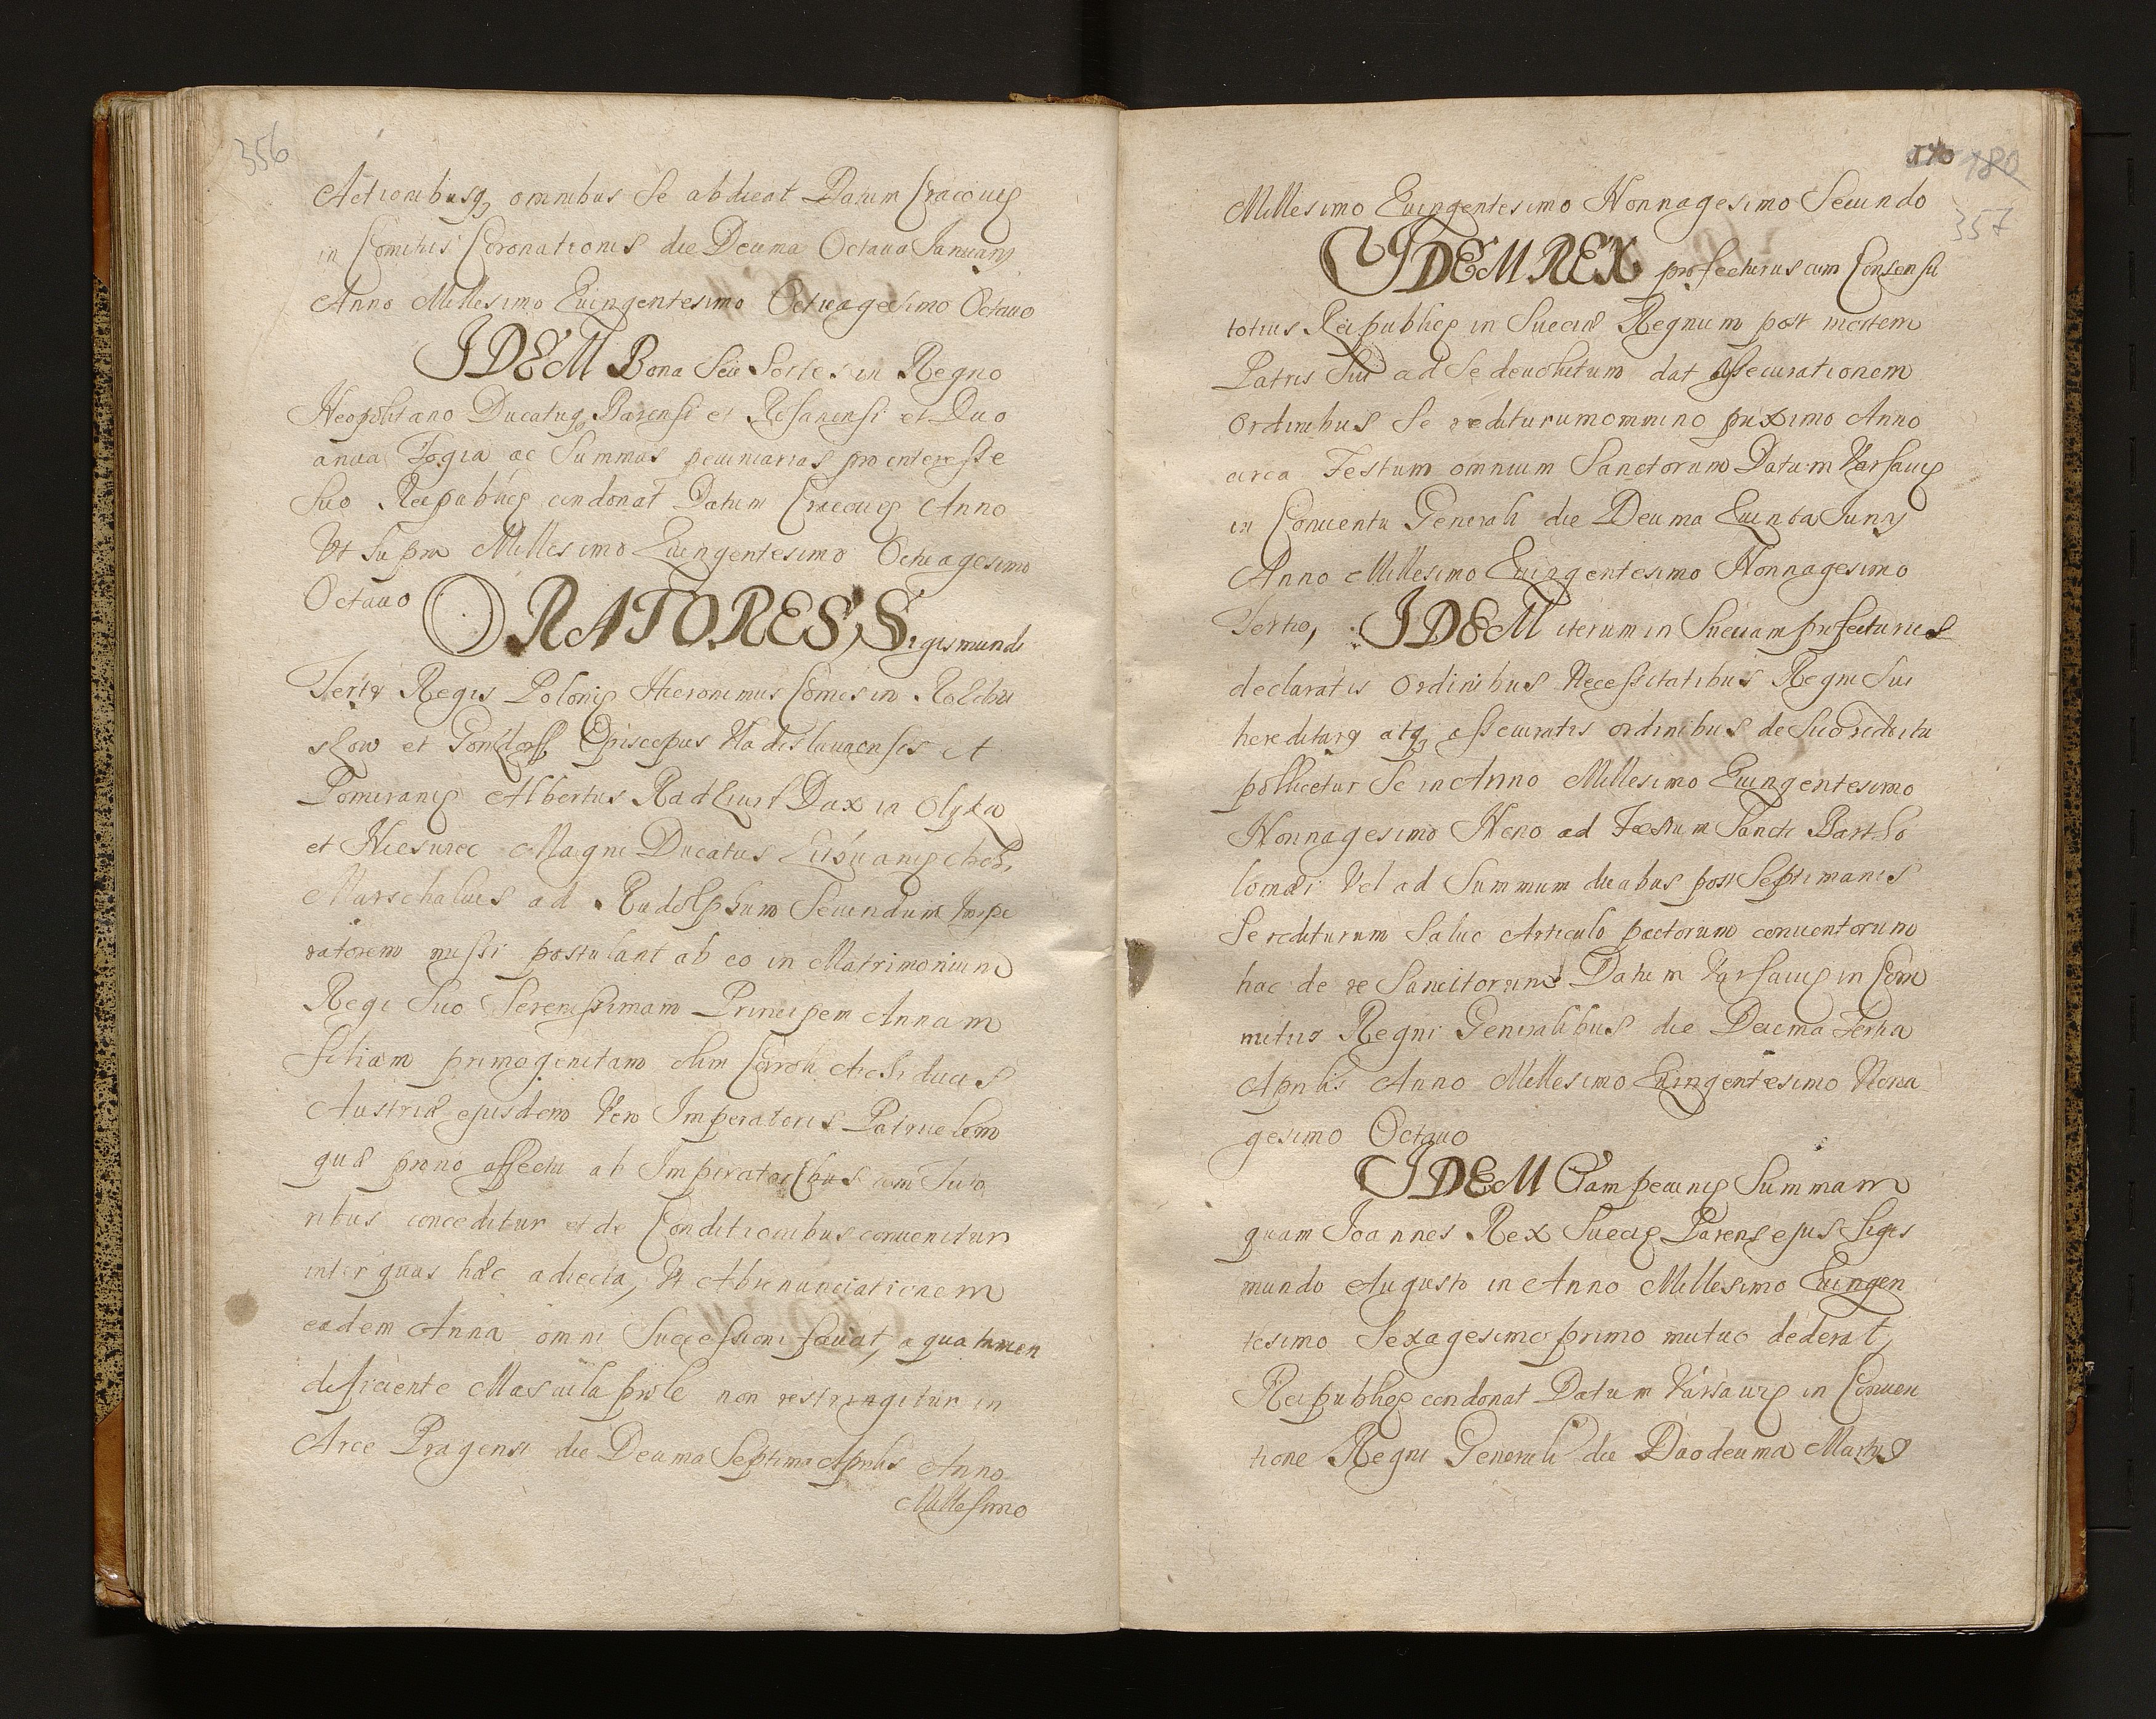 356
Actionibusq, omnibus se abdicat Datum Cracouię
in Comitiis Coronationis die Decima Octaua Januarij
Anno Millesimo Quingentesimo Octuagesimo Octauo
IDEM Bona seu Sortes in Regno
Neopolitano Ducatuq, Barensi et Rosanensi et Duo
anua Fogia ac Summas pecuniarias pro interesse
suo Reipublicę condonat Datum Cracouię Anno
Vt supra Millesimo Quingentesimo Octuagesimo
Octauo ORATORES, Sigismundi
Tertij Regis Polonię Hieronimus Comes in
et Episcopus Vladislauiensis et
Pomeranię Albertus Radziuil Dux in Olyka
et Niesuiec Magni Ducatus Lithuanię
Marschalcus ad Rudolphum Secundum Impe
ratorem missi postulant ab eo in Matrimonium
Regi Suo Serenissimam Principem Annam
filiam primogenitam olim Caroli Archiducis
Austriæ ejusdem Vero Imperatoris Patruelem
quæ prono affectu ab Imperatoribus cum Tuto
ribus conceditur et de Conditionibus conuenitur
inter quas hæc adiecta, Vt Abrenunciationem
eadem Anna omni Successioni faciat, a qua tamen
deficiente Mascula prole non restringitur in
Arce Pragensi die Decima Septima Aprilis Anno
Millesimo
170 180
357
Millesimo Quingentesimo Nonnagesimo Secundo
IDEM REX profecturus cum Consensu
totius Reipublicę in Sueciæ Regnum post mortem
Patris Sui ad se deuolutum dat assecurationem
ordinibus se rediturum omnino proximo Anno
circa Festum omnium Sanctorum Datum Varsauię
in Conuentu Generali die Decima Quinta Juny
Anno Millesimo Quingentesimo Nonnagesimo
Tertio, IDEM iterum in Sueciam profecturus
declaratis ordinibus Necessitatibus Regni sui
hereditarij atq, assecuratis ordinibus de suo reditu
pollicetur se in Anno Millesimo Quingentesimo
Nonnagesimo Nono ad Festum Sancti Bartho
lomæi Vel ad Summum duabus post Septimanis
se rediturum Saluo Articulo pactorum conuentorum
hac de re Sancitorum Datum Varsauię in Com
mitiis Regni Generalibus die Decima Tertia
Aprilis Anno Millesimo Quingentesimo Nona
gesimo Octauo
IDEM Etiam pecunię Summam
quam Joannes Rex Suecię Parens ejus Sigis
mundo Augusto in Anno Millesimo Quingen
tesimo Sexagesimo primo mutuo dederat,
Reipublicę condonat Datum Varsauię in Conuen
tione Regni Generali die Duodecima Martij